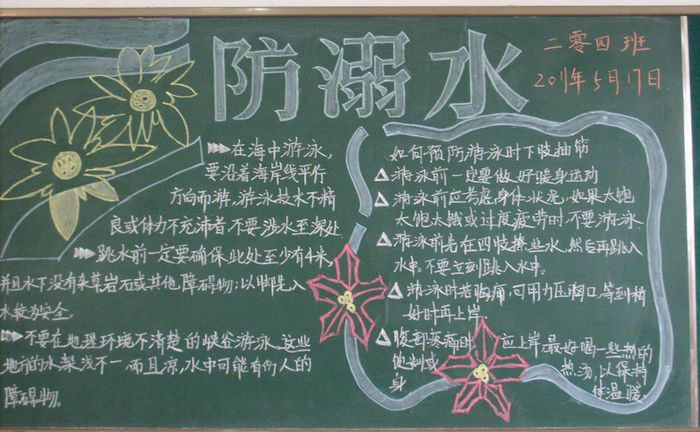 防溺水
二零四班
2011年5月17日
在海中游泳,
要沿着海岸线平行
方向而游,游泳技术不精
良或体力不充沛者,不要涉水至深处
跳水前一定要确保此处至少有4米,
并且水下没有杂草岩石或其他障碍物;以脚先入
水较为安全.
不要在地理环境不清楚的峡谷游泳.这些
地方的水深浅不一,而且凉,水中可能有伤人的
障碍物。
如何预防游泳时下肢抽筋
△游泳前一定要做好暖身运动
△游泳前应考虑身体状况,如果太饱
太饱太饿或过度疲劳时,不要游泳.
△游泳前若在四肢撩些水,然后再跳入
水中.不要立刻跳入水中。
△游泳时若胸痛,可用力压胸口,等到稍
好时再上岸.
△腹部疼痛时,应上岸,最好喝一些热的
饮料或热汤,以保持
身体温暖.